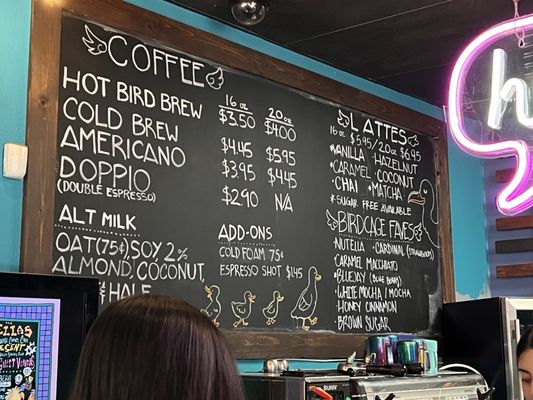 COFFEE
16 oz 20 oz
HOT BIRD BREW $3.50 $4.00
COLD BREW $4.45 $5.95
AMERICANO $3.95 $4.45
DOPPIO $2.90 N/A
(DOUBLE ESPRESSO)
ALT MILK
OAT(75¢) SOY 2%
ALMOND, COCONUT,
HALF
ADD-ONS
COLD FOAM 75¢
ESPRESSO SHOT $1.45
LATTES
16 oz $5.95/20oz $6.95
VANILLA · HAZELNUT
CARAMEL · COCONUT
CHAI · MATCHA
*SUGAR FREE AVAILABLE
BIRDCAGE FAVES
NUTELLA · CARDINAL (STRAWBERRY)
CARAMEL MACCHIATO
BLUEJAY (BLUEBERRY)
WHITE MOCHA / MOCHA
HONEY CINNAMON
BROWN SUGAR
h
BUNN